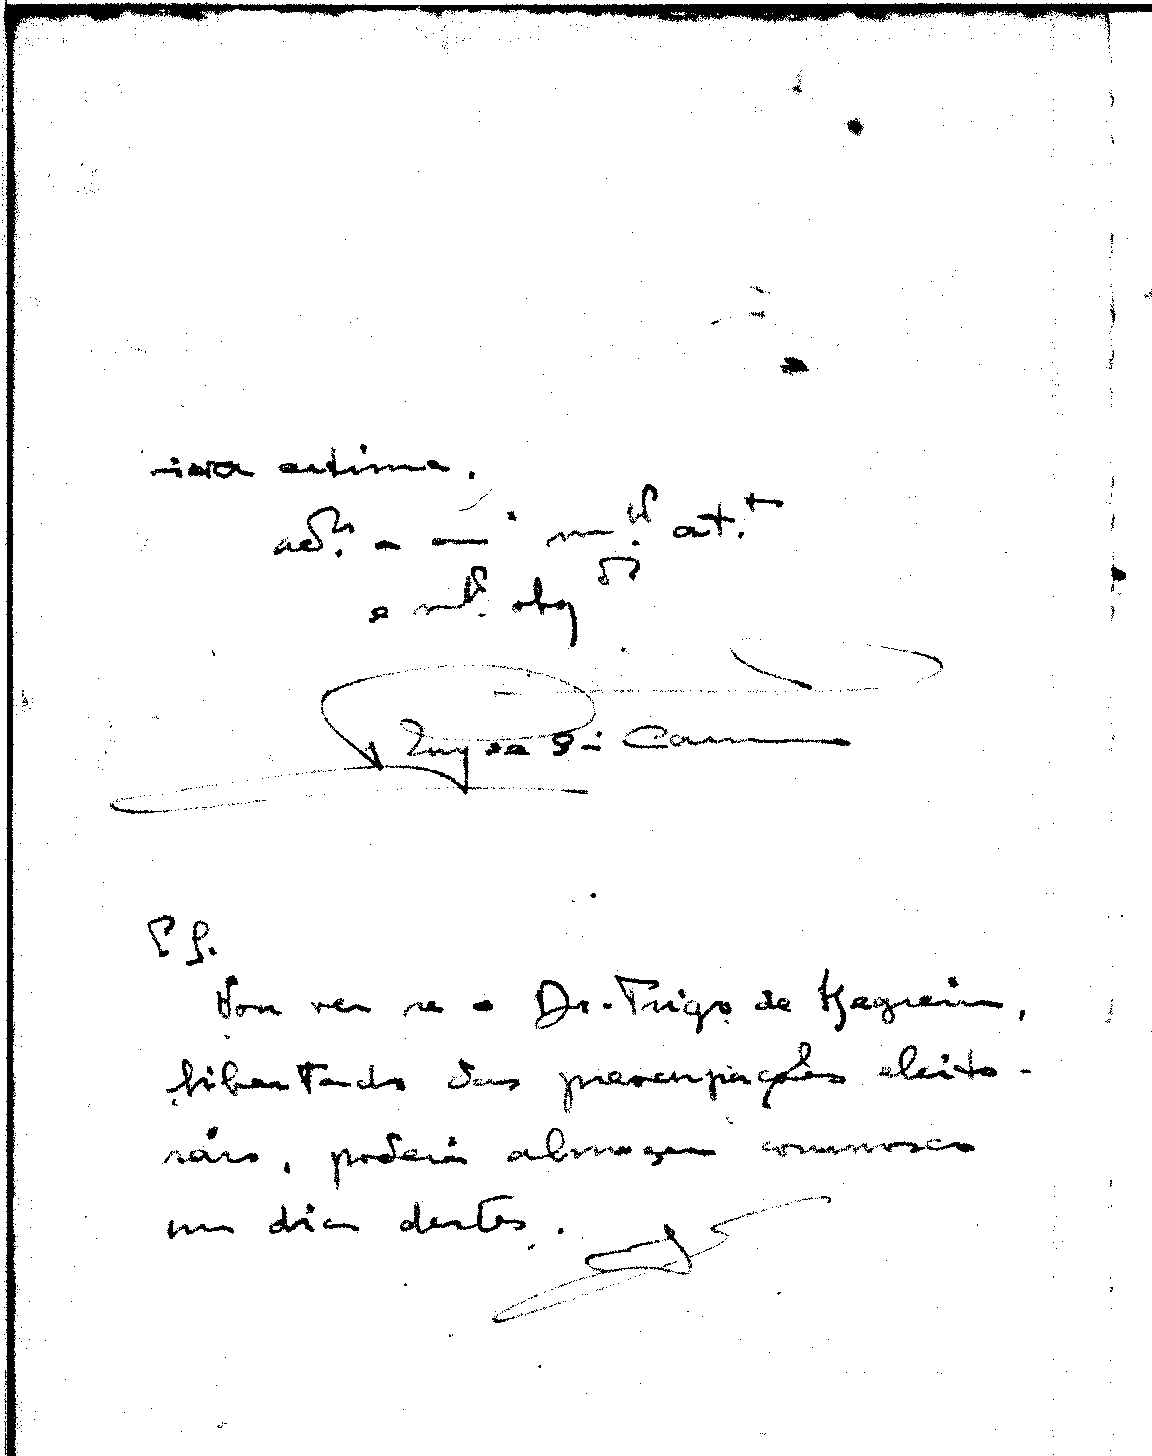 estima.
ad.or e am.º m.to at.to
e m.to obg.do
Ruy de Sá Carneiro
P.S.
Vou ver se o Dr. Trigo de Negreiros,
libertado das preocupações eleito-
rais, poderá almoçar comnosco
um dia destes.